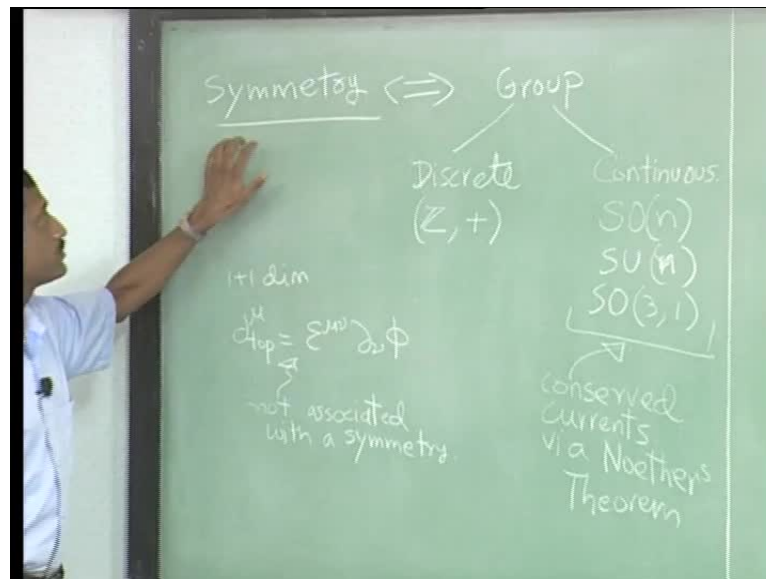 Symmetry <=> Group
Discrete
(Z, +)
Continuous.
SO(n)
SU(n)
SO(3,1)
conserved
currents
via Noether's
Theorem
1+1 dim
J^μ_top = ε^{μν} ∂_ν φ
not associated
with a symmetry.